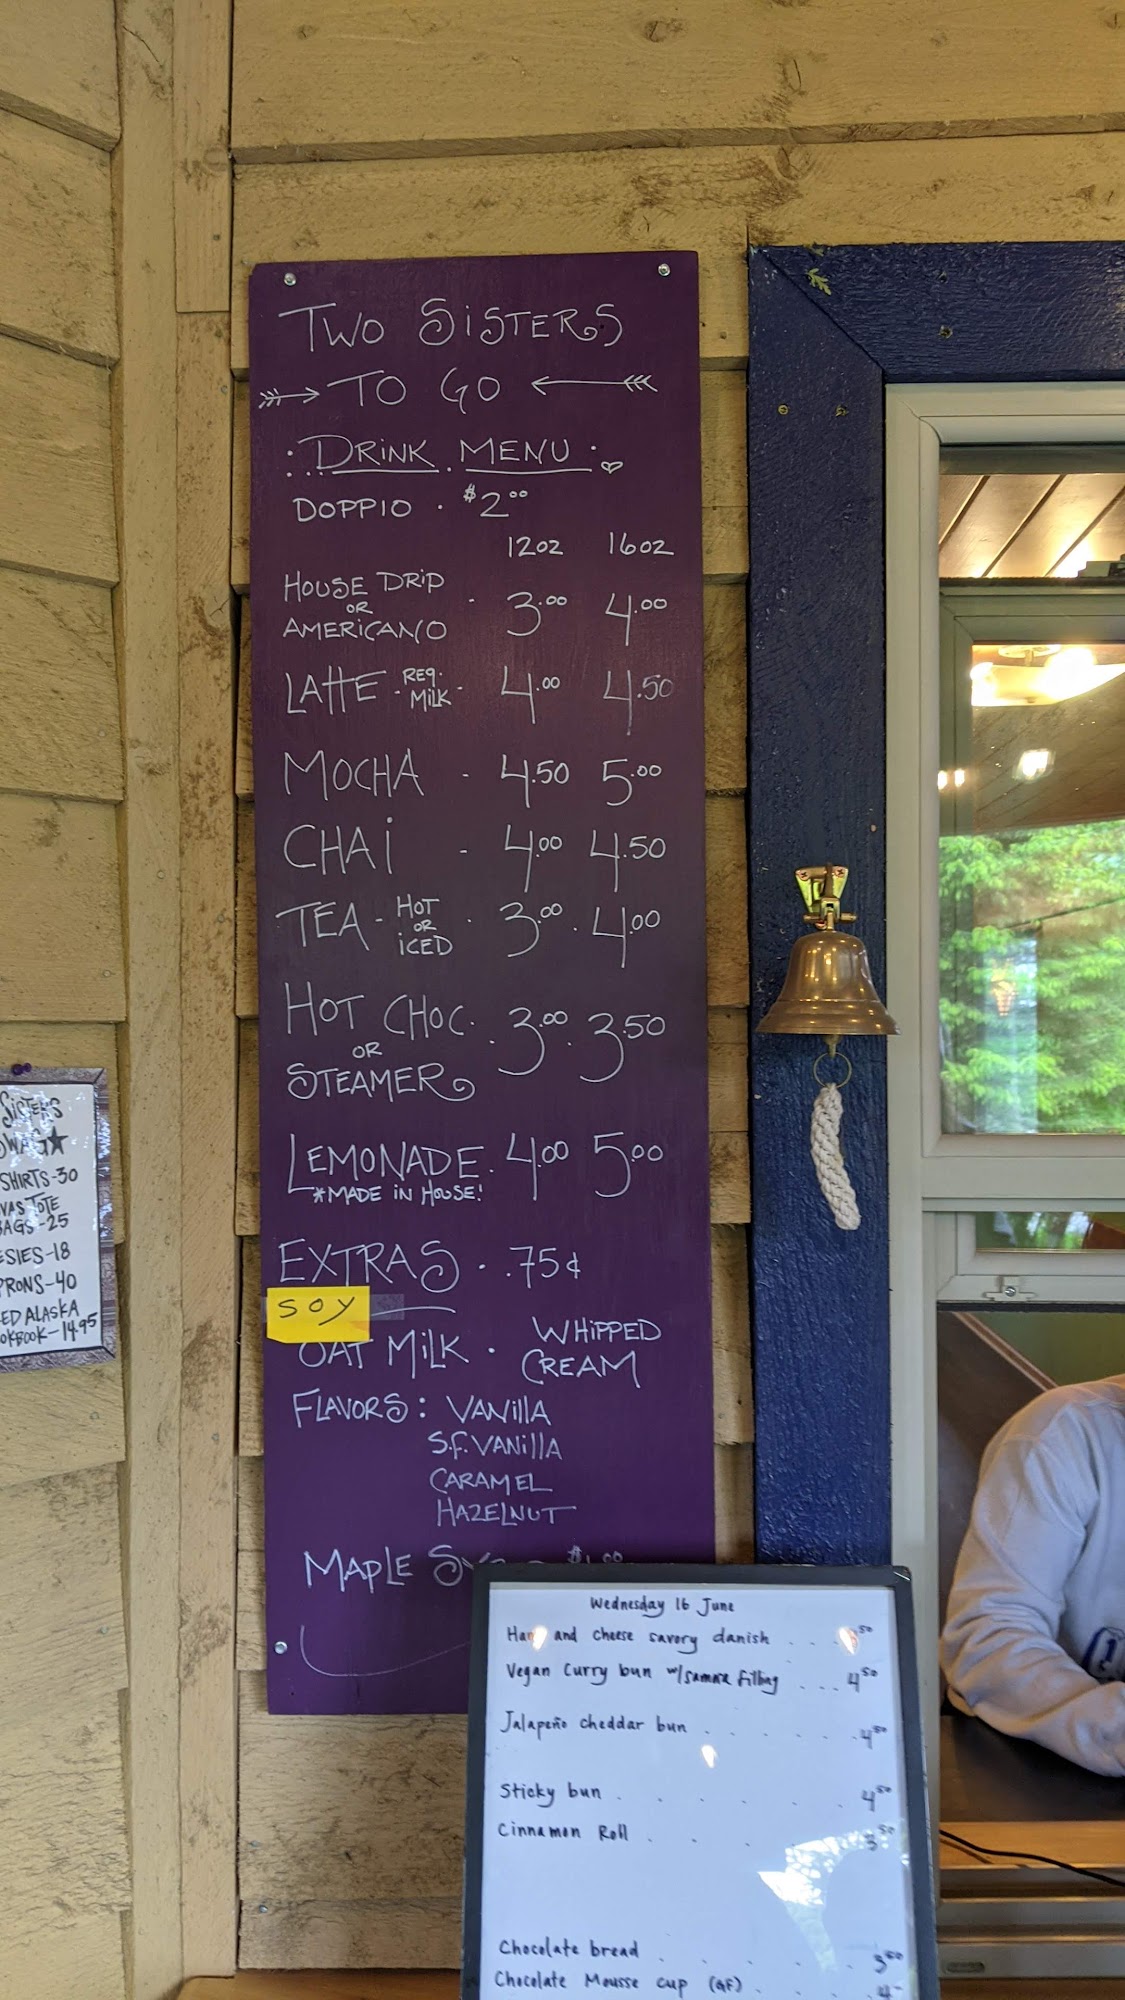 TWO SISTERS
TO GO
DRINK MENU
DOPPIO . $2.00
12oz 16oz
HOUSE DRIP
OR
AMERICANO - 3.00 4.00
LATTE - REG. MILK - 4.00 4.50
MOCHA - 4.50 5.00
CHAI - 4.00 4.50
TEA - HOT OR ICED . 3.00 . 4.00
HOT CHOC.
OR
STEAMER . 3.00 . 3.50
LEMONADE . 4.00 5.00
*MADE IN HOUSE!
EXTRAS . .75¢
SOY
OAT MILK . WHIPPED CREAM
FLAVORS: VANILLA
S.F. VANILLA
CARAMEL
HAZELNUT
MAPLE
SISTERS
SHIRTS-30
TOTE
BAGS-25
ESIES-18
PRONS-40
ALASKA
OKBOOK-14.95
Wednesday 16 June
Ham and cheese savory danish . . . 50
Vegan Curry bun w/samosa filling . . . 4 50
Jalapeño cheddar bun . . . . . 4 50
Sticky bun . . . . . . . 4 50
Cinnamon Roll . . . . 3 50
Chocolate bread . . . . . . 3 50
Chocolate Mousse cup (GF) . . . . 4-